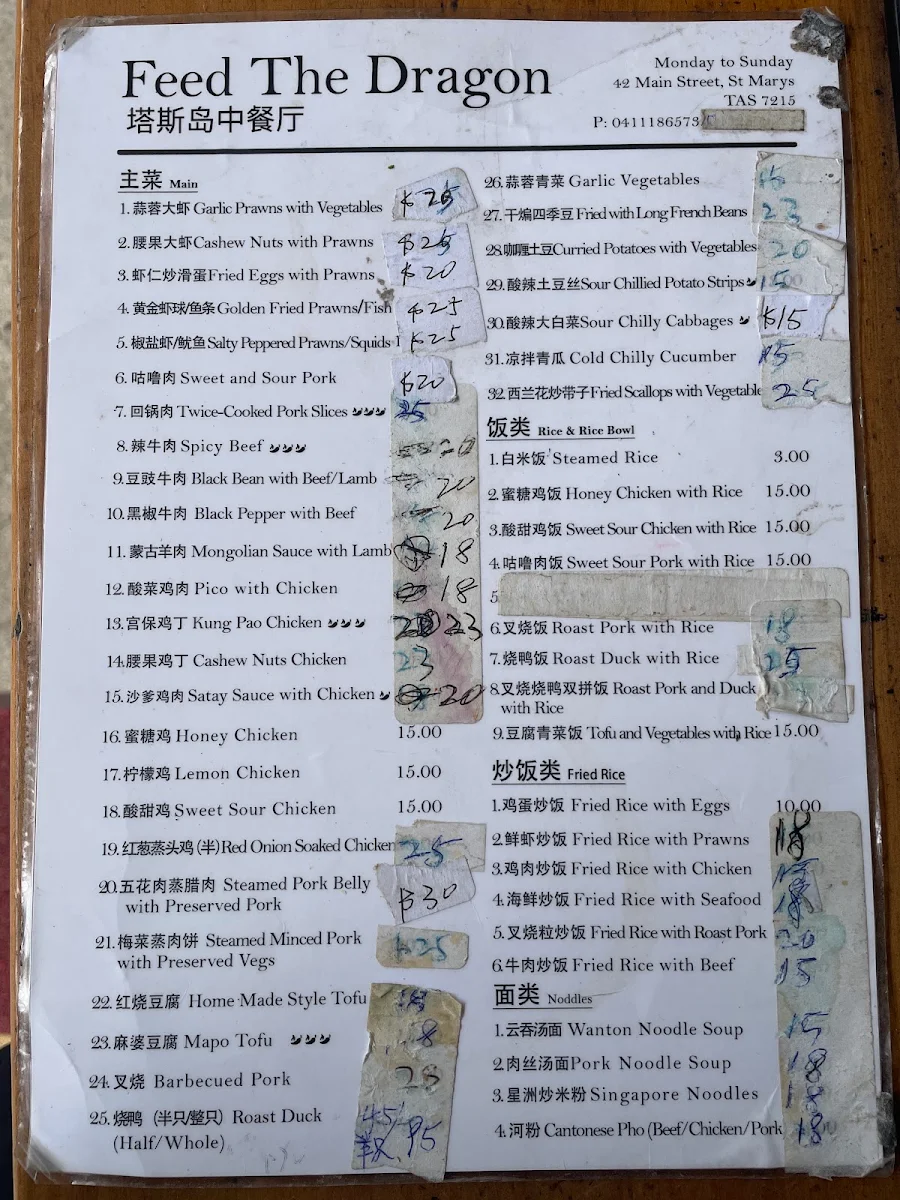 Feed The Dragon
塔斯岛中餐厅
Monday to Sunday
42 Main Street, St Marys
TAS 7215
P: 0411186573
主菜 Main
1. 蒜蓉大虾 Garlic Prawns with Vegetables
2. 腰果大虾 Cashew Nuts with Prawns $25
3. 虾仁炒滑蛋 Fried Eggs with Prawns $20
4. 黄金虾球/鱼条 Golden Fried Prawns/Fish $25
5. 椒盐虾/鱿鱼 Salty Peppered Prawns/Squids $25
6. 咕噜肉 Sweet and Sour Pork $20
7. 回锅肉 Twice-Cooked Pork Slices 25
8. 辣牛肉 Spicy Beef 20
9. 豆豉牛肉 Black Bean with Beef/Lamb 20
10. 黑椒牛肉 Black Pepper with Beef 20
11. 蒙古羊肉 Mongolian Sauce with Lamb 18
12. 酸菜鸡肉 Pico with Chicken 18
13. 宫保鸡丁 Kung Pao Chicken 23
14. 腰果鸡丁 Cashew Nuts Chicken 23
15. 沙爹鸡肉 Satay Sauce with Chicken 20
16. 蜜糖鸡 Honey Chicken 15.00
17. 柠檬鸡 Lemon Chicken 15.00
18. 酸甜鸡 Sweet Sour Chicken 15.00
19. 红葱蒸头鸡 (半) Red Onion Soaked Chicken 25
20. 五花肉蒸腊肉 Steamed Pork Belly $30
with Preserved Pork
21. 梅菜蒸肉饼 Steamed Minced Pork $25
with Preserved Vegs
22. 红烧豆腐 Home Made Style Tofu 18
23. 麻婆豆腐 Mapo Tofu
24. 叉烧 Barbecued Pork 28
25. 烧鸭 (半只/整只) Roast Duck 45/
(Half/Whole) 95
26. 蒜蓉青菜 Garlic Vegetables
27. 干煸四季豆 Fried with Long French Beans 23
28. 咖喱土豆 Curried Potatoes with Vegetables 20
29. 酸辣土豆丝 Sour Chillied Potato Strips 15
30. 酸辣大白菜 Sour Chilly Cabbages $15
31. 凉拌青瓜 Cold Chilly Cucumber 15
32. 西兰花炒带子 Fried Scallops with Vegetable 25
饭类 Rice & Rice Bowl
1. 白米饭 Steamed Rice 3.00
2. 蜜糖鸡饭 Honey Chicken with Rice 15.00
3. 酸甜鸡饭 Sweet Sour Chicken with Rice 15.00
4. 咕噜肉饭 Sweet Sour Pork with Rice 15.00
5.
6. 叉烧饭 Roast Pork with Rice 18
7. 烧鸭饭 Roast Duck with Rice 25
8. 叉烧烧鸭双拼饭 Roast Pork and Duck
with Rice
9. 豆腐青菜饭 Tofu and Vegetables with Rice 15.00
炒饭类 Fried Rice
1. 鸡蛋炒饭 Fried Rice with Eggs 10.00
2. 鲜虾炒饭 Fried Rice with Prawns 18
3. 鸡肉炒饭 Fried Rice with Chicken
4. 海鲜炒饭 Fried Rice with Seafood
5. 叉烧粒炒饭 Fried Rice with Roast Pork
6. 牛肉炒饭 Fried Rice with Beef 15
面类 Noddles
1. 云吞汤面 Wanton Noodle Soup 15
2. 肉丝汤面 Pork Noodle Soup 18
3. 星洲炒米粉 Singapore Noodles 18
4. 河粉 Cantonese Pho (Beef/Chicken/Pork 18